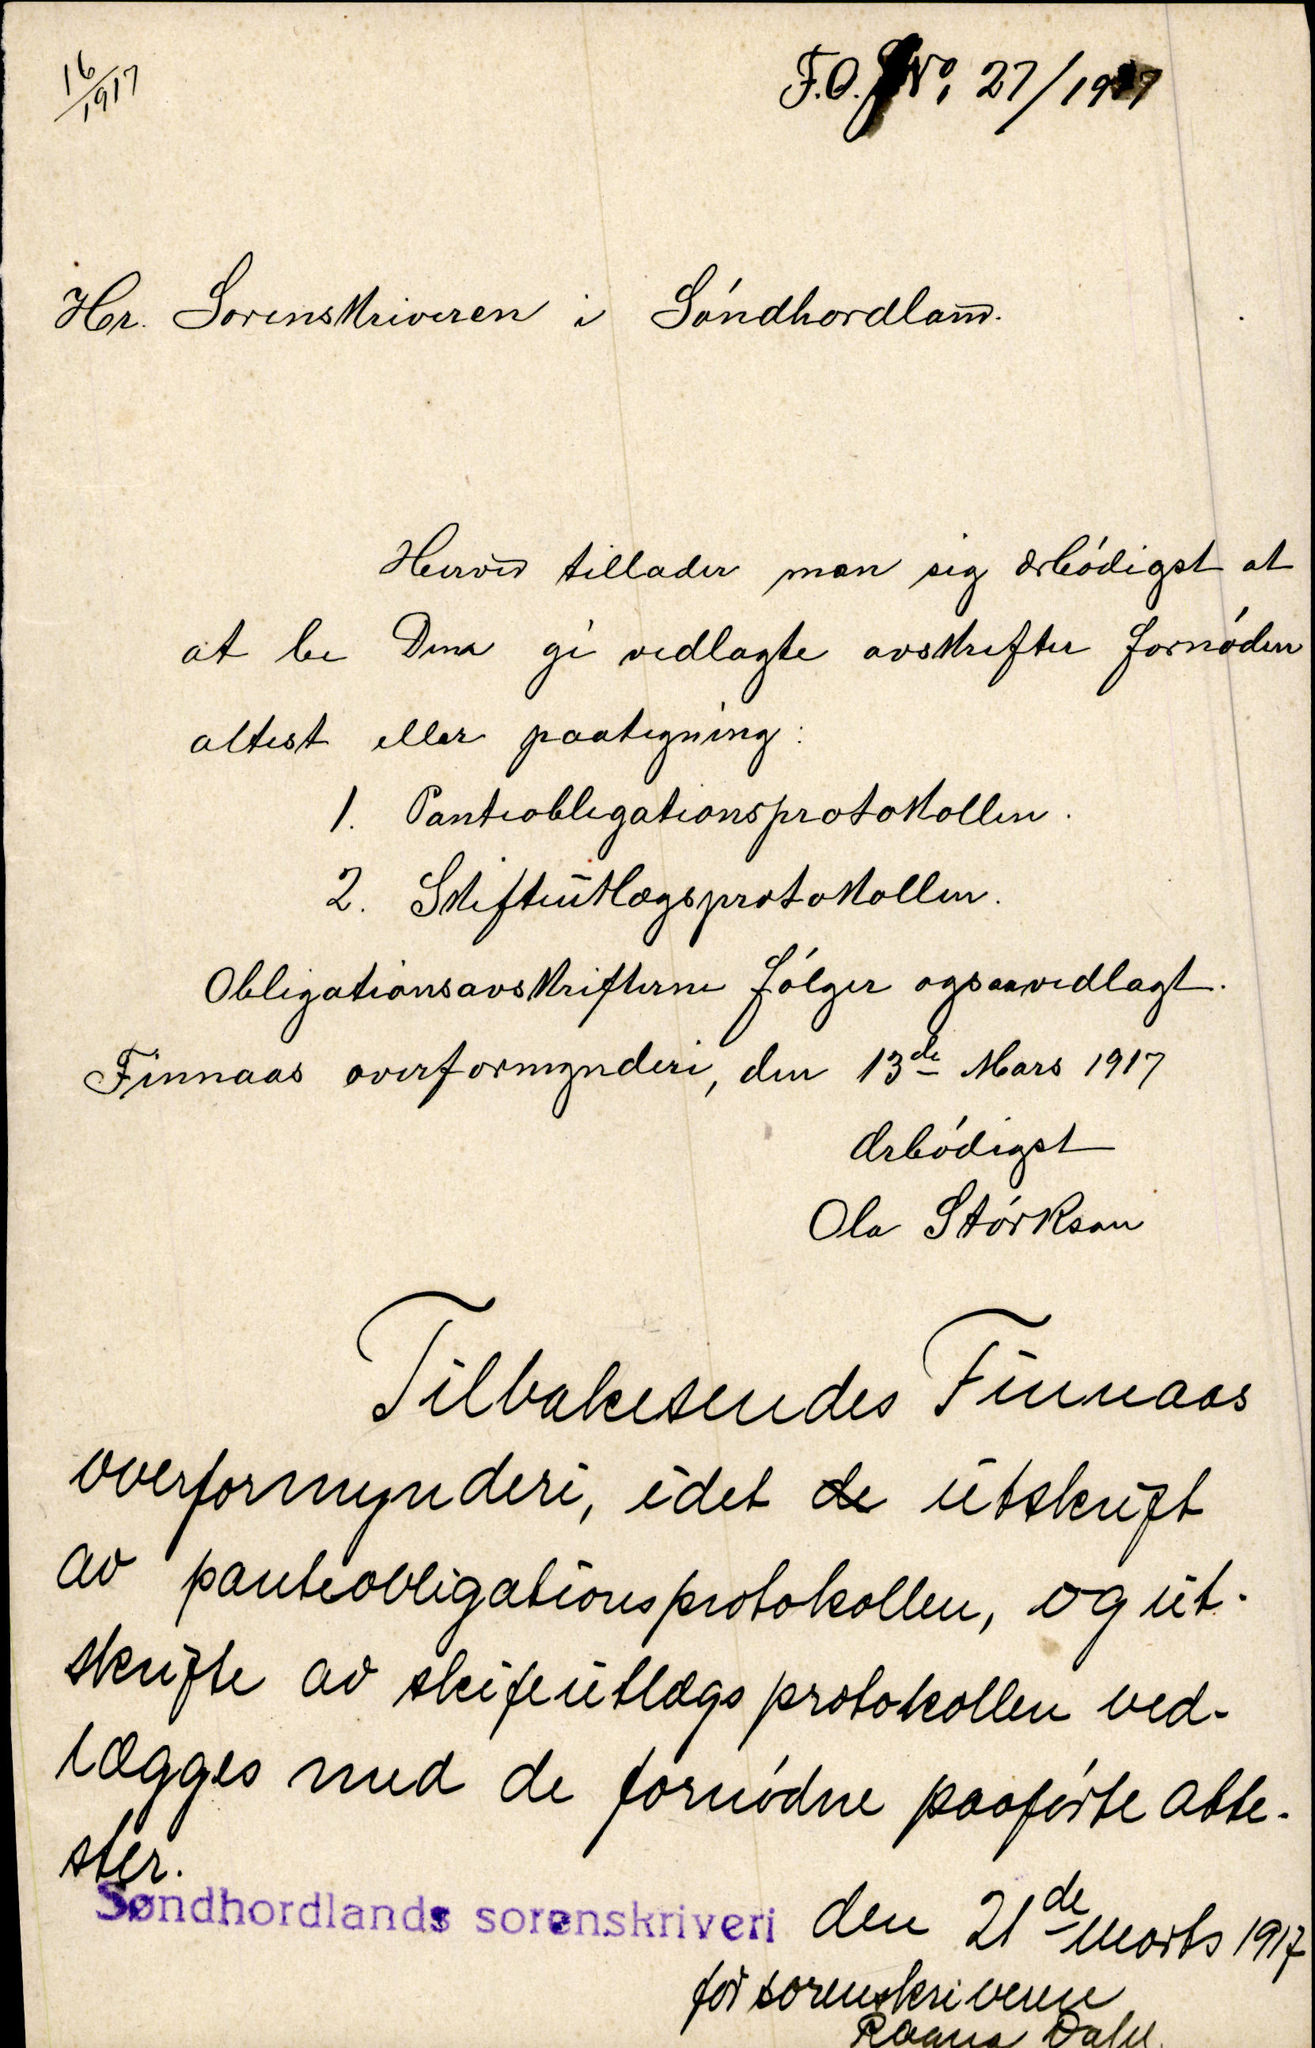 16/1917
F.O. No. 27/1917
Hr. Sorenskriveren i Söndhordland.
Herved tillader man sig ærbödigst at
at be Dem gi vedlagte avskrifter fornöden
attest eller paategning:
1. Panteobligationsprotokollen.
2. Skifteutlægsprotokollen.
Obligationsavskrifterne fölger ogsaa vedlagt.
Finnaas overformynderi, den 13de Mars 1917
Ærbödigst
Ola Störkson
Tilbakesendes Finnaas
overformynderi, idet de utskrift
av panteobligationsprotokollen, og ut-
skrifte av skifeutlægsprotokollen ved-
lægges med de fornødne paaførte atte-
ster.
Søndhordlands sorenskriveri den 21de Marts 1917
for sorenskriveren
Dahl